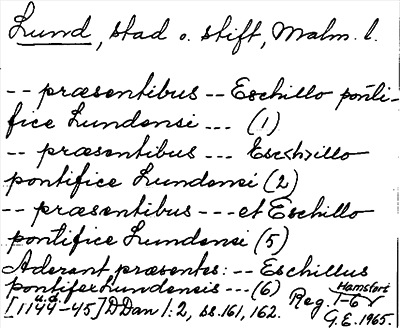 Lund, stad o. stift, Malm. l.
-- præsentibus -- Eschillo ponti-
fice Lundensi --- (1)
-- præsentibus --- Esc<h>illo
pontifice Lundensi (2)
-- præsentibus --- et Eschillo
pontifice Lundensi (5)
Aderant præsentes: -- Eschillus
pontifex Lundensis --- (6) Reg. 1-6 Hamsfort
[1144-45] u.å. DDan 1:2, ss. 161, 162. G.E. 1965.